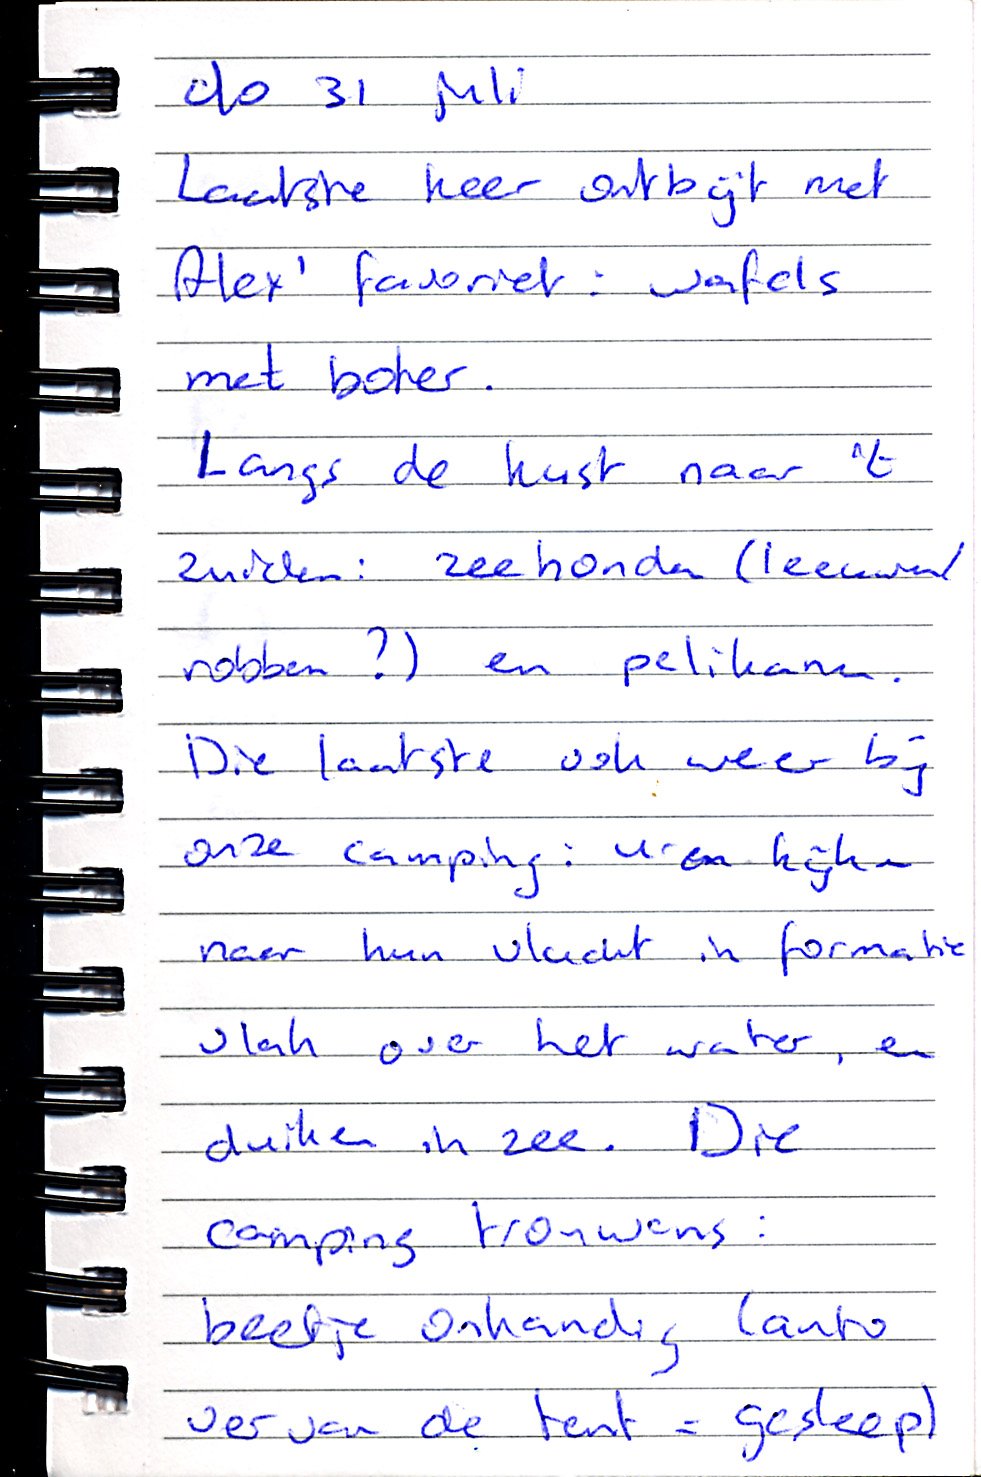 do 31 juli
Laatste keer ontbijt met
Alex' favoriet: wafels
met boter.
Langs de kust naar 't
zuiden: zeehonden (leeuwen/
robben?) en pelikanen.
Die laatste ook weer bij
onze camping: uren kijken
naar hun vlucht in formatie
vlak over het water, en
duiken in zee. Die
camping trouwens:
beetje onhandig (auto
ver van de tent = gesleep)